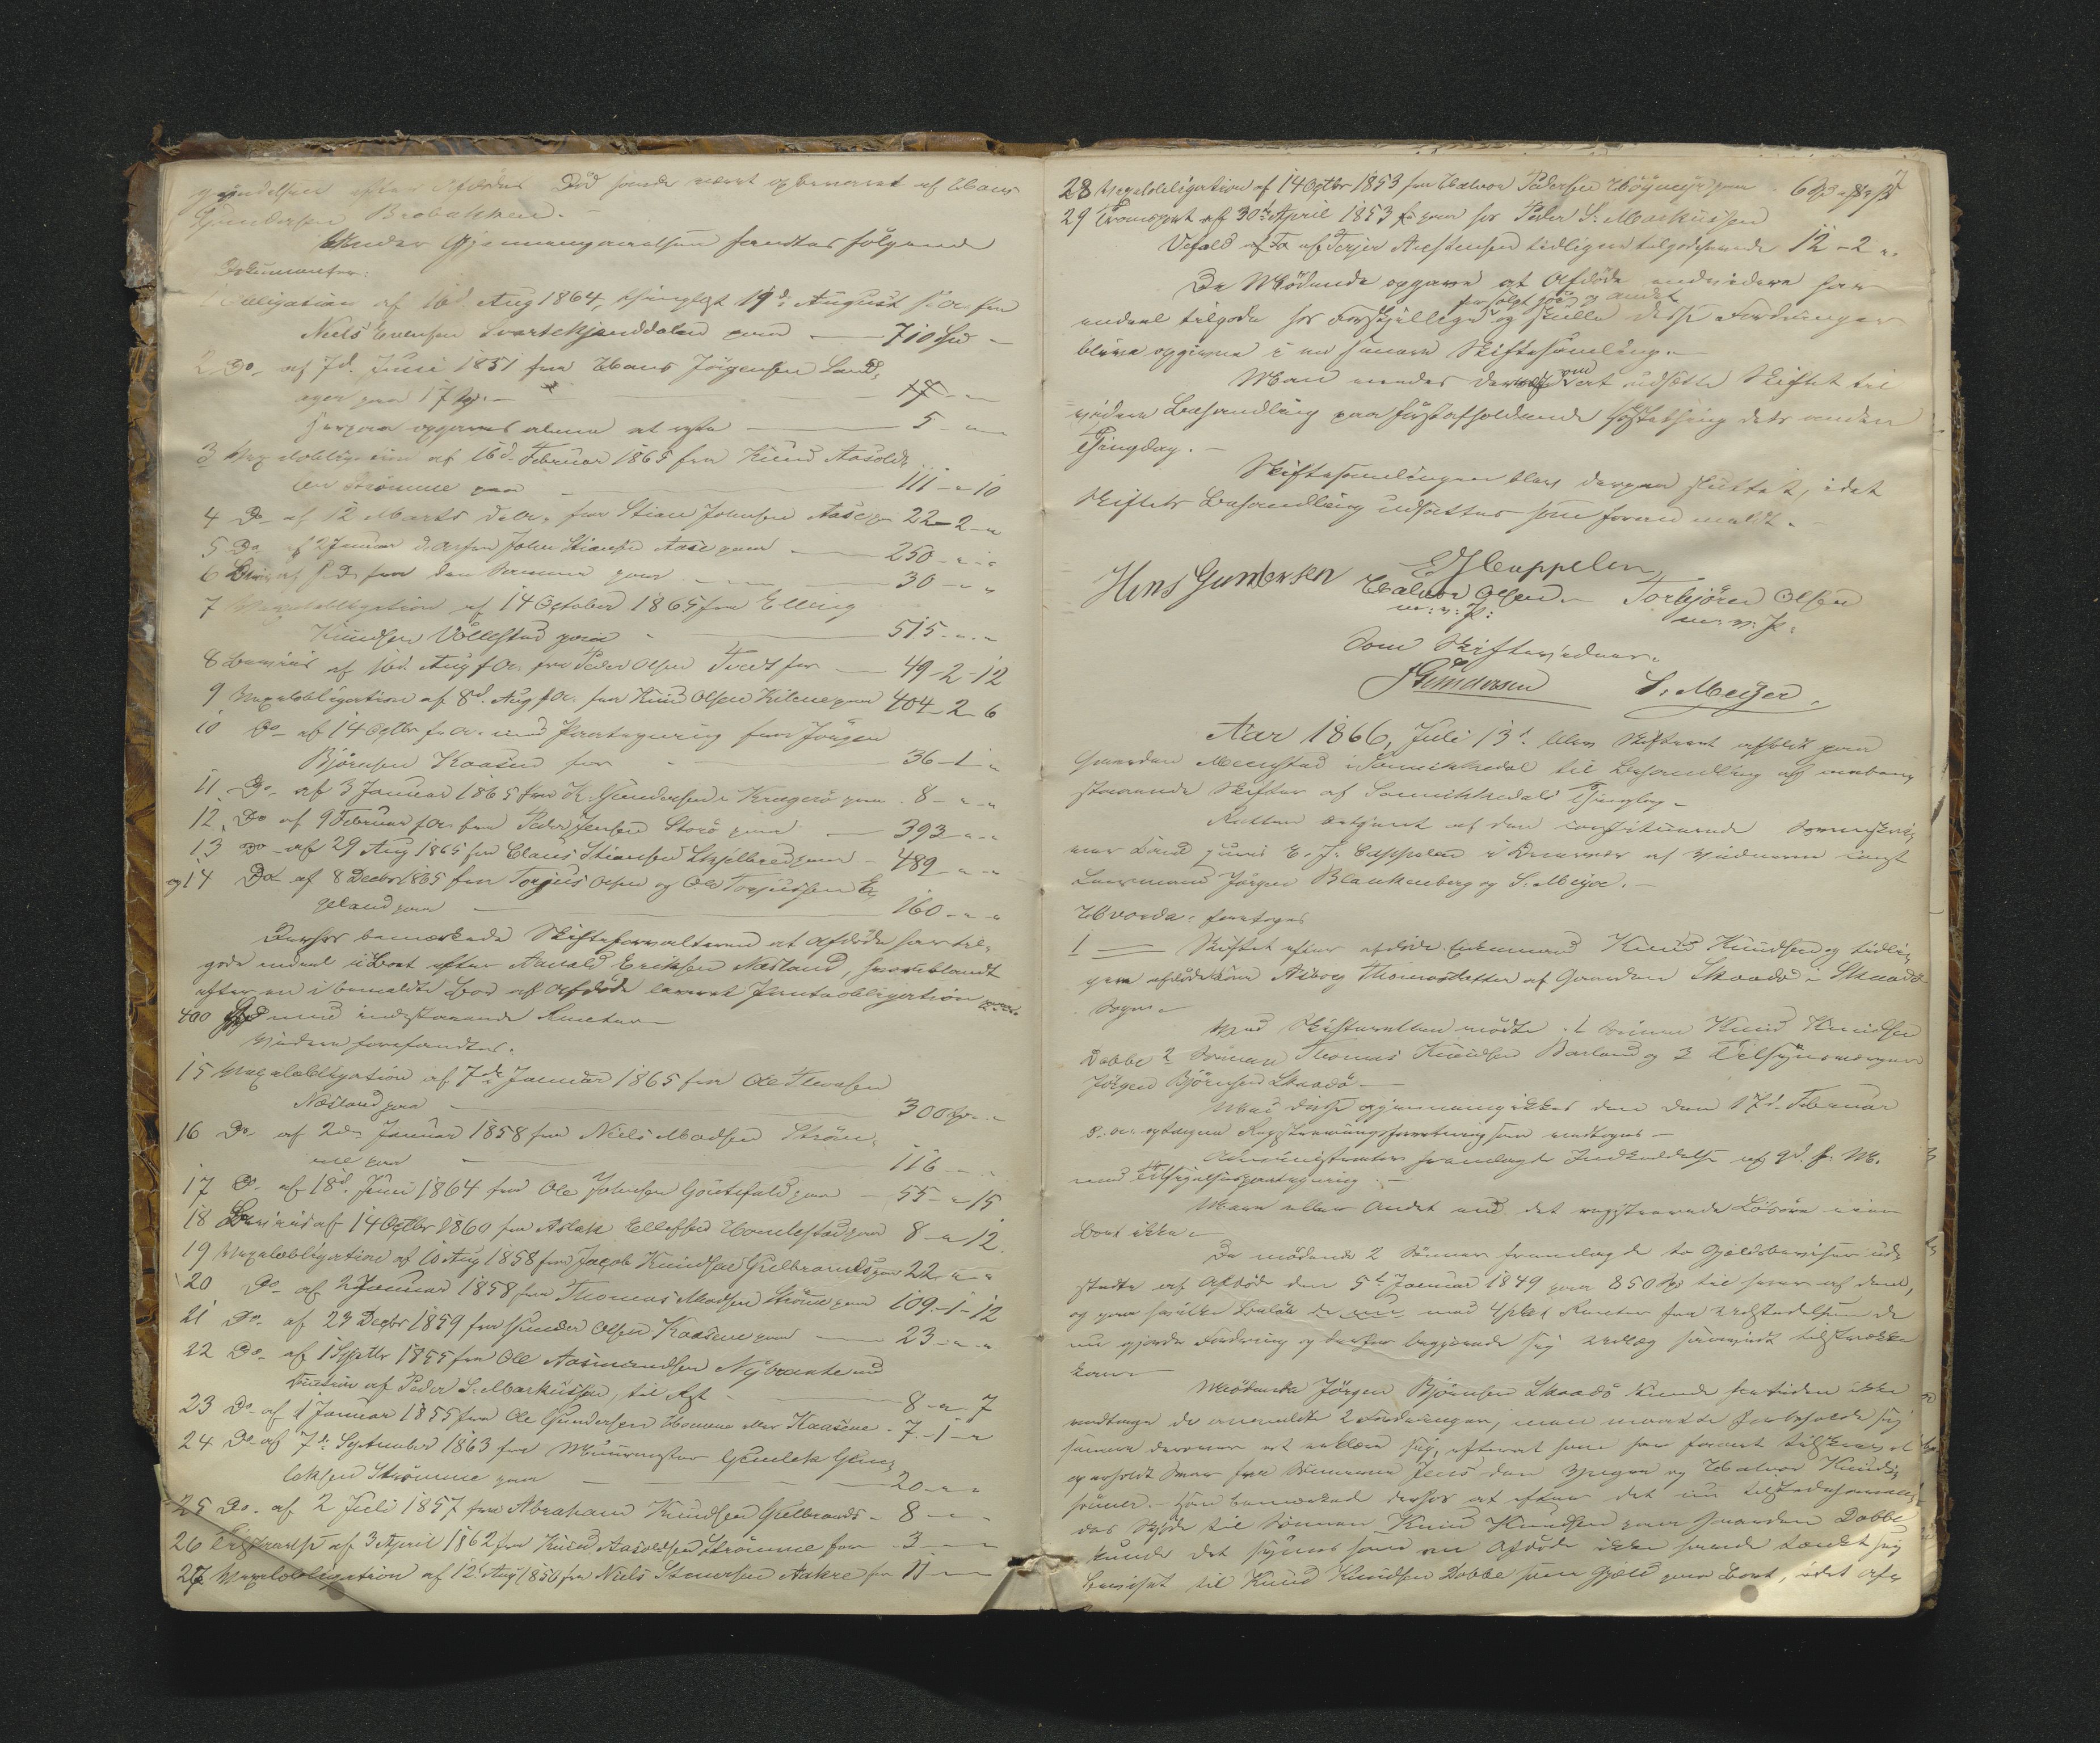 efter Afdødes Død havde været opbevaret af Hans
Gundersen Brobakken. -
Under Gjennemgaaelsen fandtes følgende
Dokumenter:
1 Obligation af 16d. Aug 1864, thinglyst 19d. August s. A. fra
Niels Evensen Svartekjenddalen paa 710 Spd -
2 Do af 7d. Juni 1851 fra Hans Jörgensen Land-
ager paa 17 Spd. - 17 - -
herpaa opgaves alene at reste 5 - -
3 Vexelobligation af 16d. Februar 1865 fra Knud Aasold-
sen Strömme paa 111 - " 10
4 Do af 12 Marts d. A. fra Stian Johnsen Aase p. 22 - 2 - "
5 Do af 2 Januar d. A. fra John Stiansen Aase paa 250 - " - "
6 Bevis af s. D. fra den Samme paa 30 - " - "
7 Vexelobligation af 14 October 1865 fra Elling
Knudsen Vollestad paa 515 - " - "
8 Bevis af 16d. Aug f. A. fra Peder Olsen Tveit for 49 - 2 - 12
9 Vexelobligation af 8d. Aug f. A. fra Knud Olsen Kilene paa 404 - 2 - 6
10 Do af 14 Octbr f. A. med Paategning fra Jörgen
Björnsen Kaasen for 36 - 1 - "
11 Do af 3 Januar 1865 fra K. Gundersen Kragerö paa 8 - " - "
12 Do af 9 Februar f. A. fra Peder Jensen Storö paa 393 - " - "
13 Do af 29 Aug 1865 fra Claus Stiansen Skjelbred paa 489 - " - "
og 14 Do af 8 Decbr 1865 fra Torjus Olsen og Ole Torjussen
geland paa 160 - " - "
Derhos bemærkede Skifteforvalteren at Afdøde har til-
gode endeel i Boet efter Aanold Eriksen Næsland, hvoriblandt
efter en i bemeldte Bo af Afdøde leveret Panteobligation paa
400 Spd med indestaaende Renter -
Videre forefandtes.
15 Vexelobligation af 7de Januar 1865 fra Ole
Næsland paa 300 Spd - "
16 Do af 2den Januar 1858 fra Niels Madsen Ström-
me paa 116 - " - "
17 Do af 18d. Juni 1864 fra Ole Johnsen paa 55 - " 15
18 Bevis af 14 Octbr 1860 fra Aslak Ellefsen Homlestad paa 8 - " 12
19 Vexelobligation af 10 Aug 1858 fra Jacob Knudsen Gulbrands paa 22 " "
20 Do af 2 Januar 1858 fra Thomas Madsen Strömme paa 109 - 1 - 12
21 Do af 29 Decbr 1859 fra Gunder Olsen Kaasene paa 23 - " - "
22 Do af 1 Septbr 1855 fra Ole Aasmundsen Nybraate med
Caution af Peder S. Markussen, til Rest 8 - " - 7
23 Do af 1 Januar 1855 fra Ole Gundersen Homme eller Kaasene - 7 - 1 - "
24 Do af 7d. September 1863 fra Muurmester Gunlek Gun-
leksen Strömme paa 20 - " - "
25 Do af 2 Juli 1857 fra Abraham Knudsen Gulbrands - 8 - " -
26 af 3 April 1862 fra Knud Aasoldsen Strömme for 3 - " -
27 Vexelobligation af 12 Aug 1850 fra Niels Stenersen Aakre for 11 - "
28 Vexelobligation af 14 Octbr 1853 fra Halvor Pedersen Höymyr paa 6
29 Transport af 30te April 1853 paa hos Peder S. Markussen
af Terjer Austensen tidligere tilgodehavende 12 - 2 "
De Mødende opgave at Afdøde endvidere har
for solgt og andet
endeel tilgode hos Forskjellige og skulle disse Fordringer
blive opgivne i en senere Skiftesamling. -
Man enedes derefter om at udsætte Skiftet til
videre Behandling paa førstafholdende Høstething dets anden
Thingdag. -
Skiftesamlingen blev derpaa sluttet, idet
Skiftets Behandling udsættes som foran meldt. -
Hans Gundersen E J Cappelen
Halvor Olsen Torbjören Olsen
m: v: P: m: v: P:
Som Skiftevidner.
JGundersen S. Meyer.
Aar 1866, Juli 13d. blev Skifteret afholdt paa
Gaarden Menstad i Sannikedal til Behandling af neden-
staaende Skifter af Sannikedals Thinglag. -
Retten betjent af den constituerede Sorenskri-
ver Cand juris E. J. Cappelen i Overvær af Vidnerne
Lensmand Jörgen Blankenberg og S. Meyer. -
Hvorda foretoges
1 Skiftet efter afdöde Enkemand Knud Knudsen og tidli-
gere afdöde Kone Aaborg Thomasdatter af Gaarden Skaadö i Skaadö
Sogn. -
Ved Skifteretten mödte 1 Sönnen Knud Knudsen
Dobbe 2 Sönnen Thomas Knudsen Barland og 3 Tilsynsværgen
Jörgen Björnsen Skaadö -
Med disse gjennemgikkes den den 17d. Februar
d. A. optagne Registreringsforretning som vedtoges -
Administrator fremlagde Indkaldelse af 9d. f. M.
med
Mere eller Andet end det registrerede Lösöre eier
Boet ikke. -
De mödende 2 Sönner fremlagde to Gjeldsbeviser ud-
stedte af Afdöde den 5te Januar 1849 paa 850 Spd til hver af dem,
og paa hvilke Belöb med 4 pCt Renter fra Udstedelsen de
nu gjorde Fordring og derfor begjærede sig Udlæg saavidt tilstrække
kan -
Mödende Jörgen Björnsen Skaadö kunde for tiden ikke
vedtage de anmeldte 2 Fordringer, men maatte forbeholde sig
senere derover at erklære sig, efterat han har faaet tilskrevet
og erholdt Svar fra Sönnerne Jens den yngre og Halvor Knuds-
sönner. - Han bemærkede derhos at efter det
det Skjöde til Sönnen Knud Knudsen paa Gaarden Dobbe
kunde det synes som om Afdöde ikke havde tænkt sig
Beviset til Knud Knudsen Dobbe som Gjeld paa Boet, idet Af-